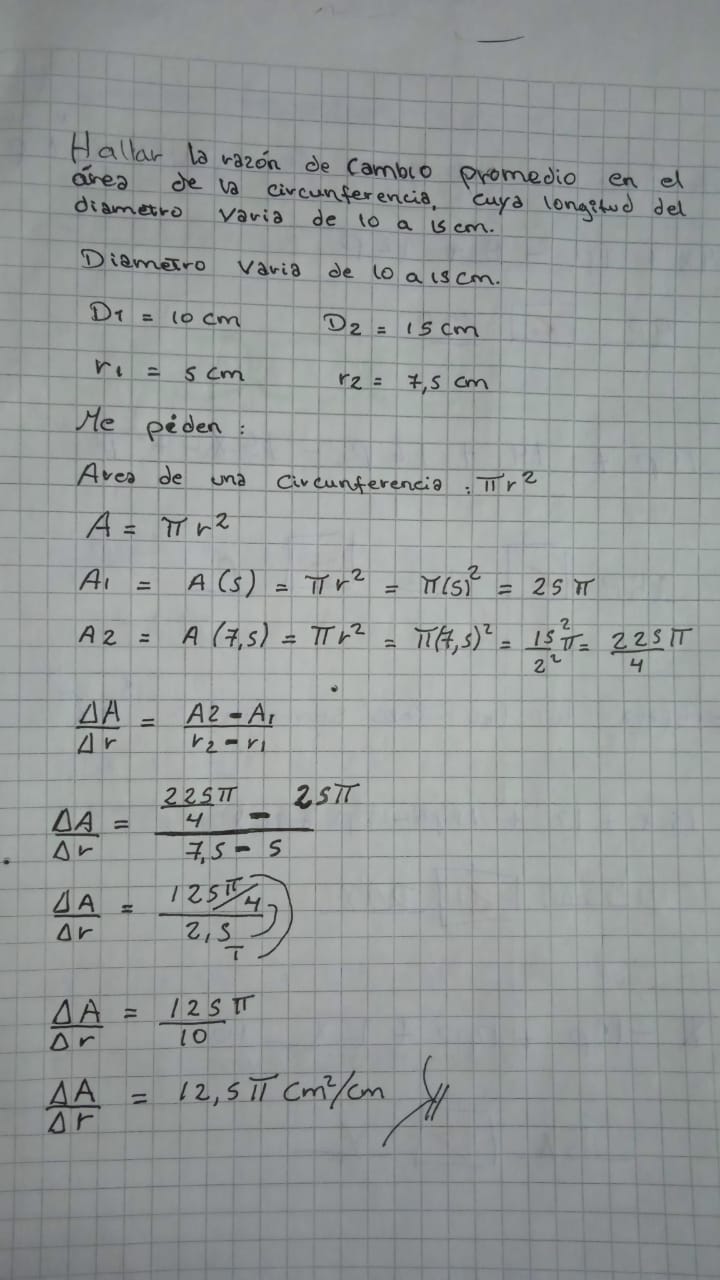 Hallar la razón de cambio promedio en el
área de la circunferencia, cuya longitud del
diametro varia de 10 a 15 cm.
Diametro varia de 10 a 15 cm.
D1 = 10 cm D2 = 15 cm
r1 = 5 cm r2 = 7,5 cm
Me piden :
Area de una circunferencia : πr²
A = πr²
A1 = A(5) = πr² = π(5)² = 25π
A2 = A(7,5) = πr² = π(7,5)² = 15²/2² π = 225π/4
ΔA/Δr = A2 - A1/r2 - r1
ΔA/Δr = 225π/4 - 25π/7,5 - 5
ΔA/Δr = 125π/4/2,5/1
ΔA/Δr = 125π/10
ΔA/Δr = 12,5π cm²/cm